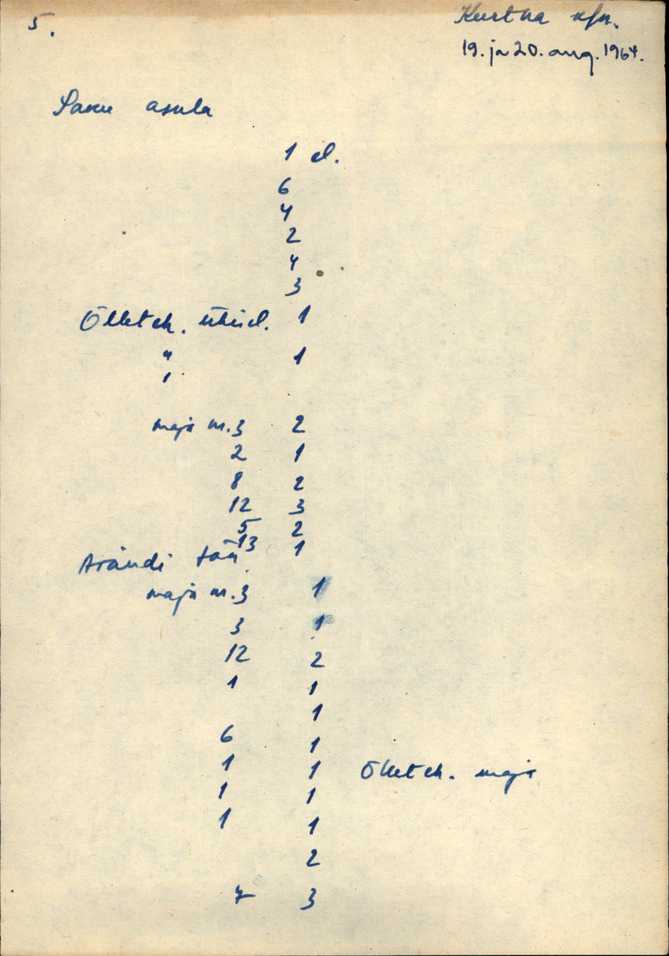 5.
Kurtna
19. ja 20. aug. 1964.
Saku asula
1 el.
6
4
2
4
3
Õlleteh. ühisel. 1
" 1
"
maja nr. 3 2
2 1
8 2
12 3
5 2
13 1
maja nr. 3 1
3 1
12 2
1 1
1
6 1
1 1 Õlleteh. maja
1 1
1 1
2
7 3